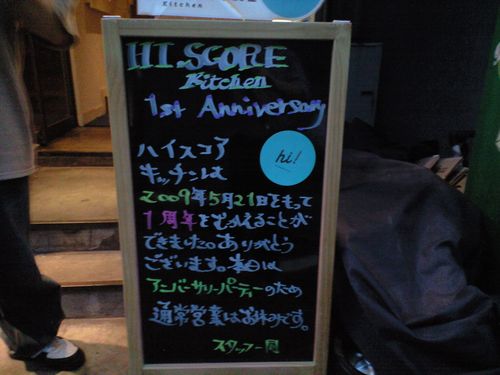 Kitchen
HI SCORE
Kitchen
1st Anniversary
hi!
ハイスコア
キッチンは
2009年5月21日をもって
1周年をむかえることが
できました。ありがとう
ございます。本日は
アニバーサリーパーティーのため
通常営業はお休みです。
スタッフ一同